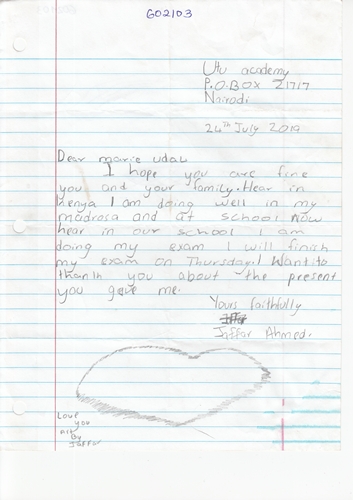 602103
Utu academy
P.O.BOX 21717
Nairodi
24th July 2019
Dear marie udal
I hope you are fine
you and your family. Hear in
kenya I am doing well in my
madrosa and at school Now
hear in our school I am
doing my exam I will finish
my exam on Thursday. I Want to
thanlh you about the present
you gave me.
Yours faithfully
Jaffar Ahmed.
Love
you
by
Jaffar